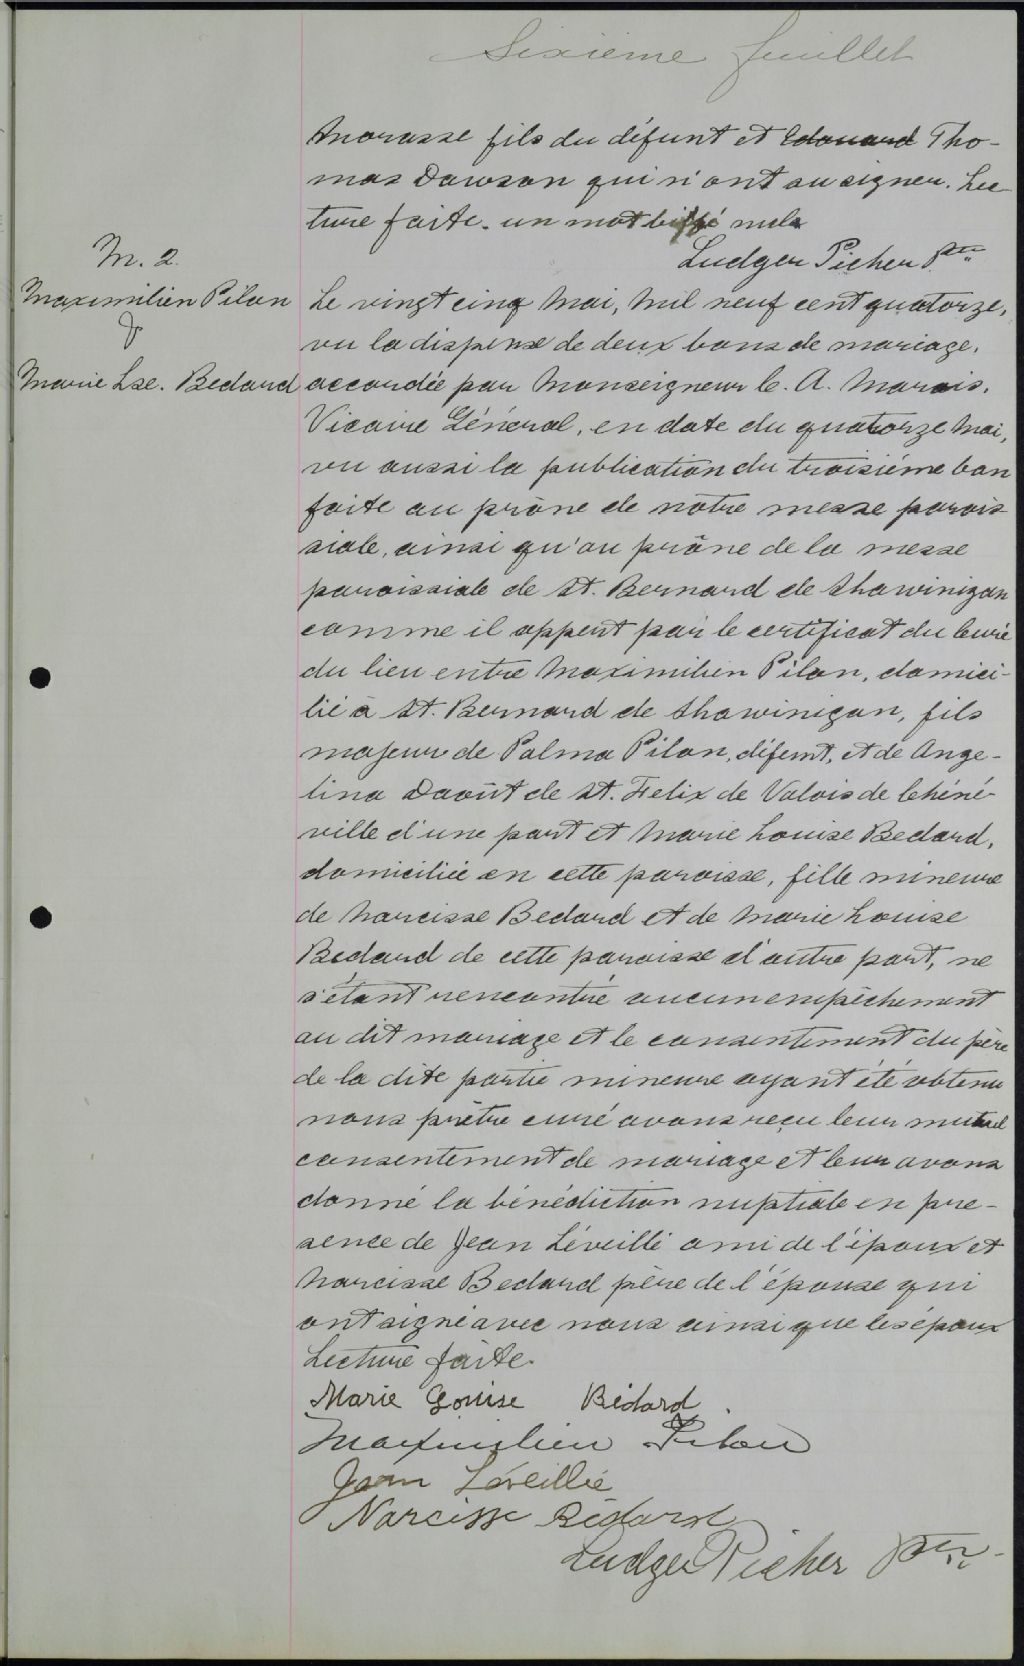 Sixième feuillet
Morasse fils du défunt et Edouard Tho-
mas Dawson qui n'ont su signer. Lec-
ture faite. un mot biffé nul
Ludger Picher Ptre
M. 2.
Maximilien Pilon
&
Marie Lse. Bedard
Le vingt cinq Mai, Mil neuf cent quatorze,
vu la dispense de deux bans de mariage,
accordée par Monseigneur C. A. Marois,
Vicaire Général, en date du quatorze Mai,
vu aussi la publication du troisième ban
faite au prône de notre messe parois
siale, ainsi qu'au prône de la messe
paroissiale de St. Bernard de Shawinigan
comme il appert par le certificat du Curé
du lieu entre Maximilien Pilon, domici-
lié à St. Bernard de Shawinigan, fils
majeur de Palma Pilon, défunt, et de Ange-
lina Daoût de St. Felix de Valois de Chéné-
ville d'une part et Marie Louise Bedard,
domiciliée en cette paroisse, fille mineure
de Narcisse Bedard et de Marie Louise
Bedard de cette paroisse d'autre part, ne
s'étant rencontré aucun empêchement
au dit mariage et le consentement du père
de la dite partie mineure ayant été obtenu
nous prêtre curé avons reçu leur mutuel
consentement de mariage et leur avons
donné la bénédiction nuptiale en pre-
sence de Jean Léveillé ami de l'époux et
Narcisse Bedard père de l'épouse qui
ont signé avec nous ainsi que les époux
Lecture faite.
Marie Louise Bédard.
Maximilien Pilon
Jean Léveillée
Narcisse Bédard
Ludger Picher Ptre